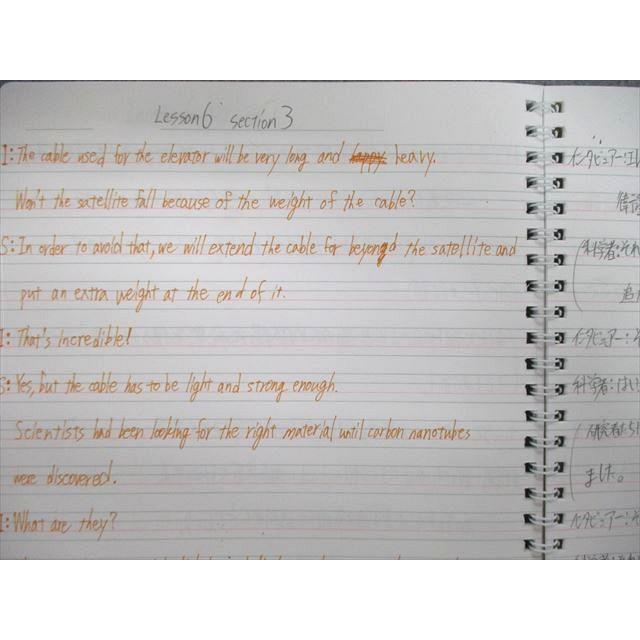 Lesson6 section3
I: The cable used for the elevator will be very long and heavy.
Won't the satellite fall because of the weight of the cable?
S: In order to avoid that, we will extend the cable far beyond the satellite and
put an extra weight at the end of it.
I: That's incredible!
S: Yes, but the cable has to be light and strong enough.
Scientists had been looking for the right material until carbon nanotubes
were discovered.
I: What are they?
インタビュアー:
科学者: それ
追
インタビュアー: そ
科学者: はい
ました。
インタビュアー: そ